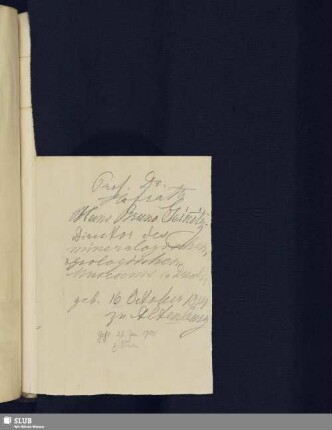 Prof. Dr.
Hofrath
Hans Bruno Geinitz,
Director des
mineralogischen,
geologischen
Museums in Dresd.,
geb. 16 October 1814
zu Altenburg
gest. 28 Jan 1900
SLUB
Wir führen Wissen.